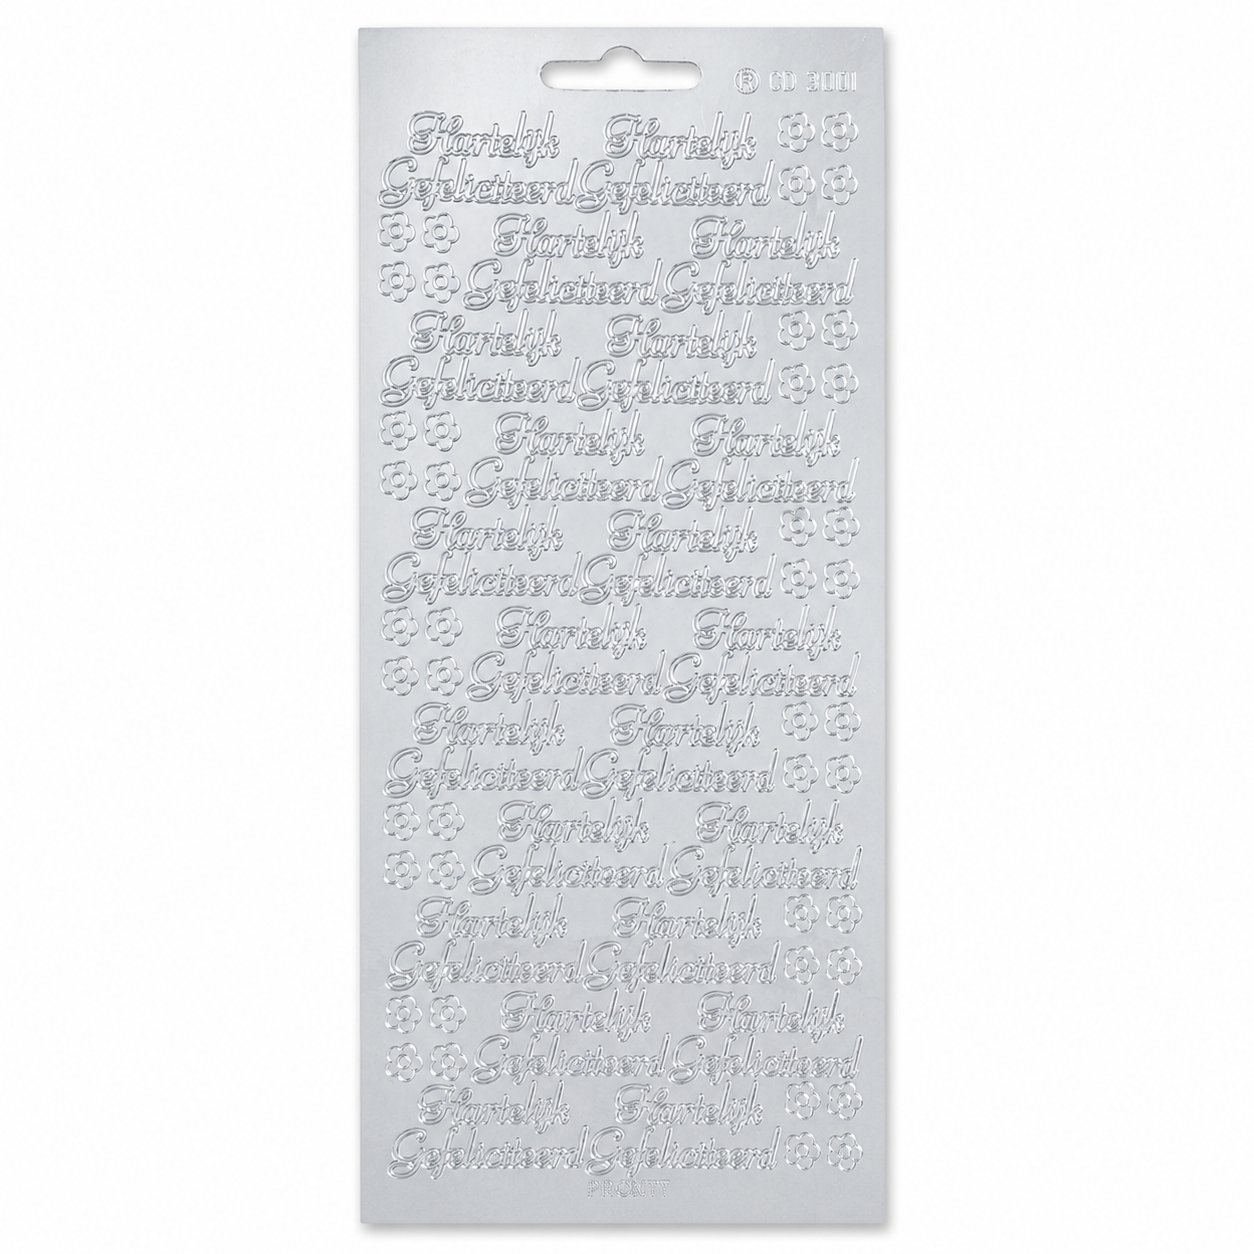 ® CD 3001
Hartelijk Hartelijk
Gefeliciteerd Gefeliciteerd
Hartelijk Hartelijk
Gefeliciteerd Gefeliciteerd
Hartelijk Hartelijk
Gefeliciteerd Gefeliciteerd
Hartelijk Hartelijk
Gefeliciteerd Gefeliciteerd
Hartelijk Hartelijk
Gefeliciteerd Gefeliciteerd
Hartelijk Hartelijk
Gefeliciteerd Gefeliciteerd
Hartelijk Hartelijk
Gefeliciteerd Gefeliciteerd
Hartelijk Hartelijk
Gefeliciteerd Gefeliciteerd
Hartelijk Hartelijk
Gefeliciteerd Gefeliciteerd
Hartelijk Hartelijk
Gefeliciteerd Gefeliciteerd
Hartelijk Hartelijk
Gefeliciteerd Gefeliciteerd
PRONTY